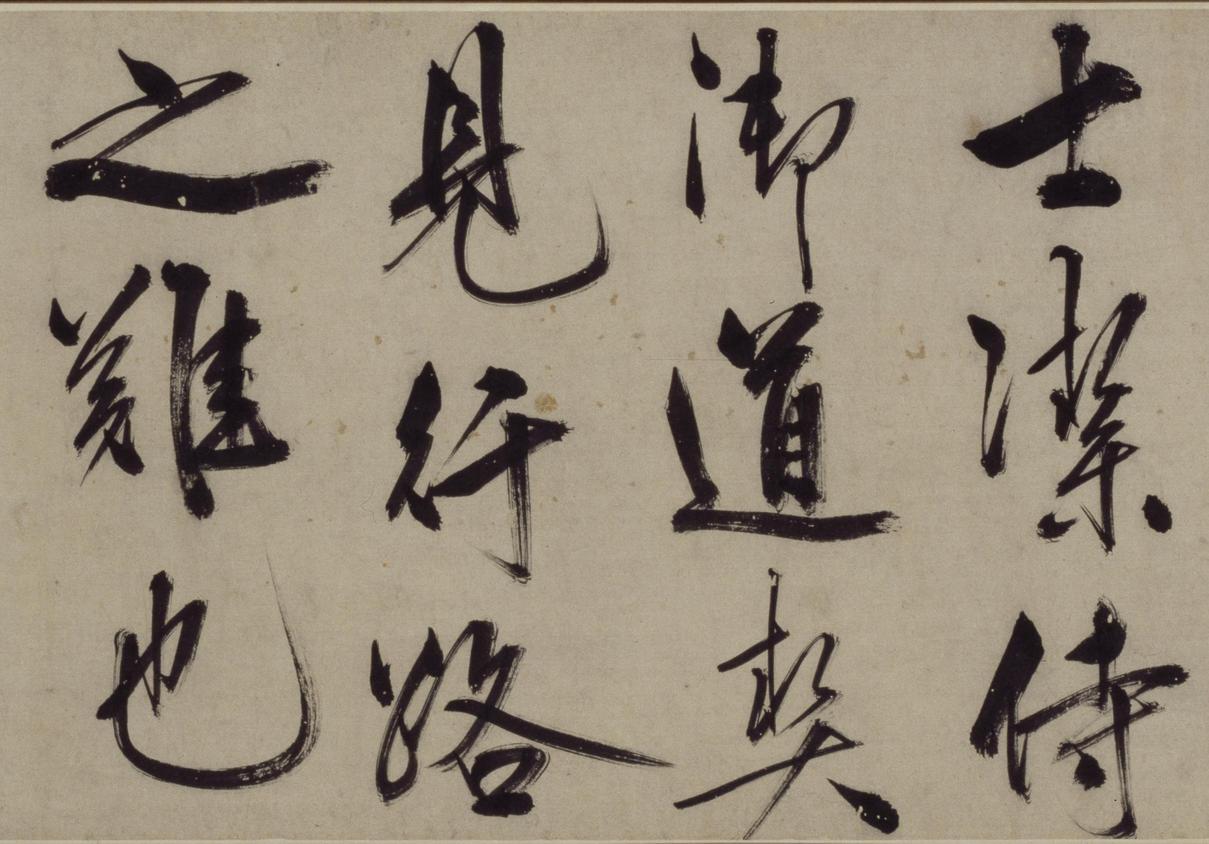 士潔侍
御道契
見行路
之難也